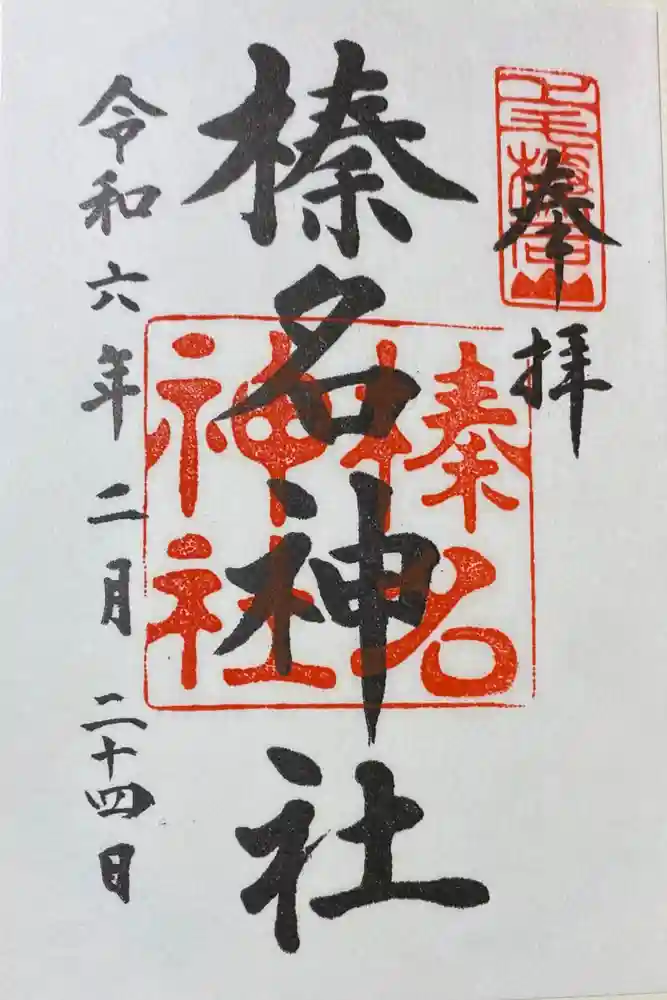 奉拝
榛名神社
令和六年二月二十四日
榛名
神社